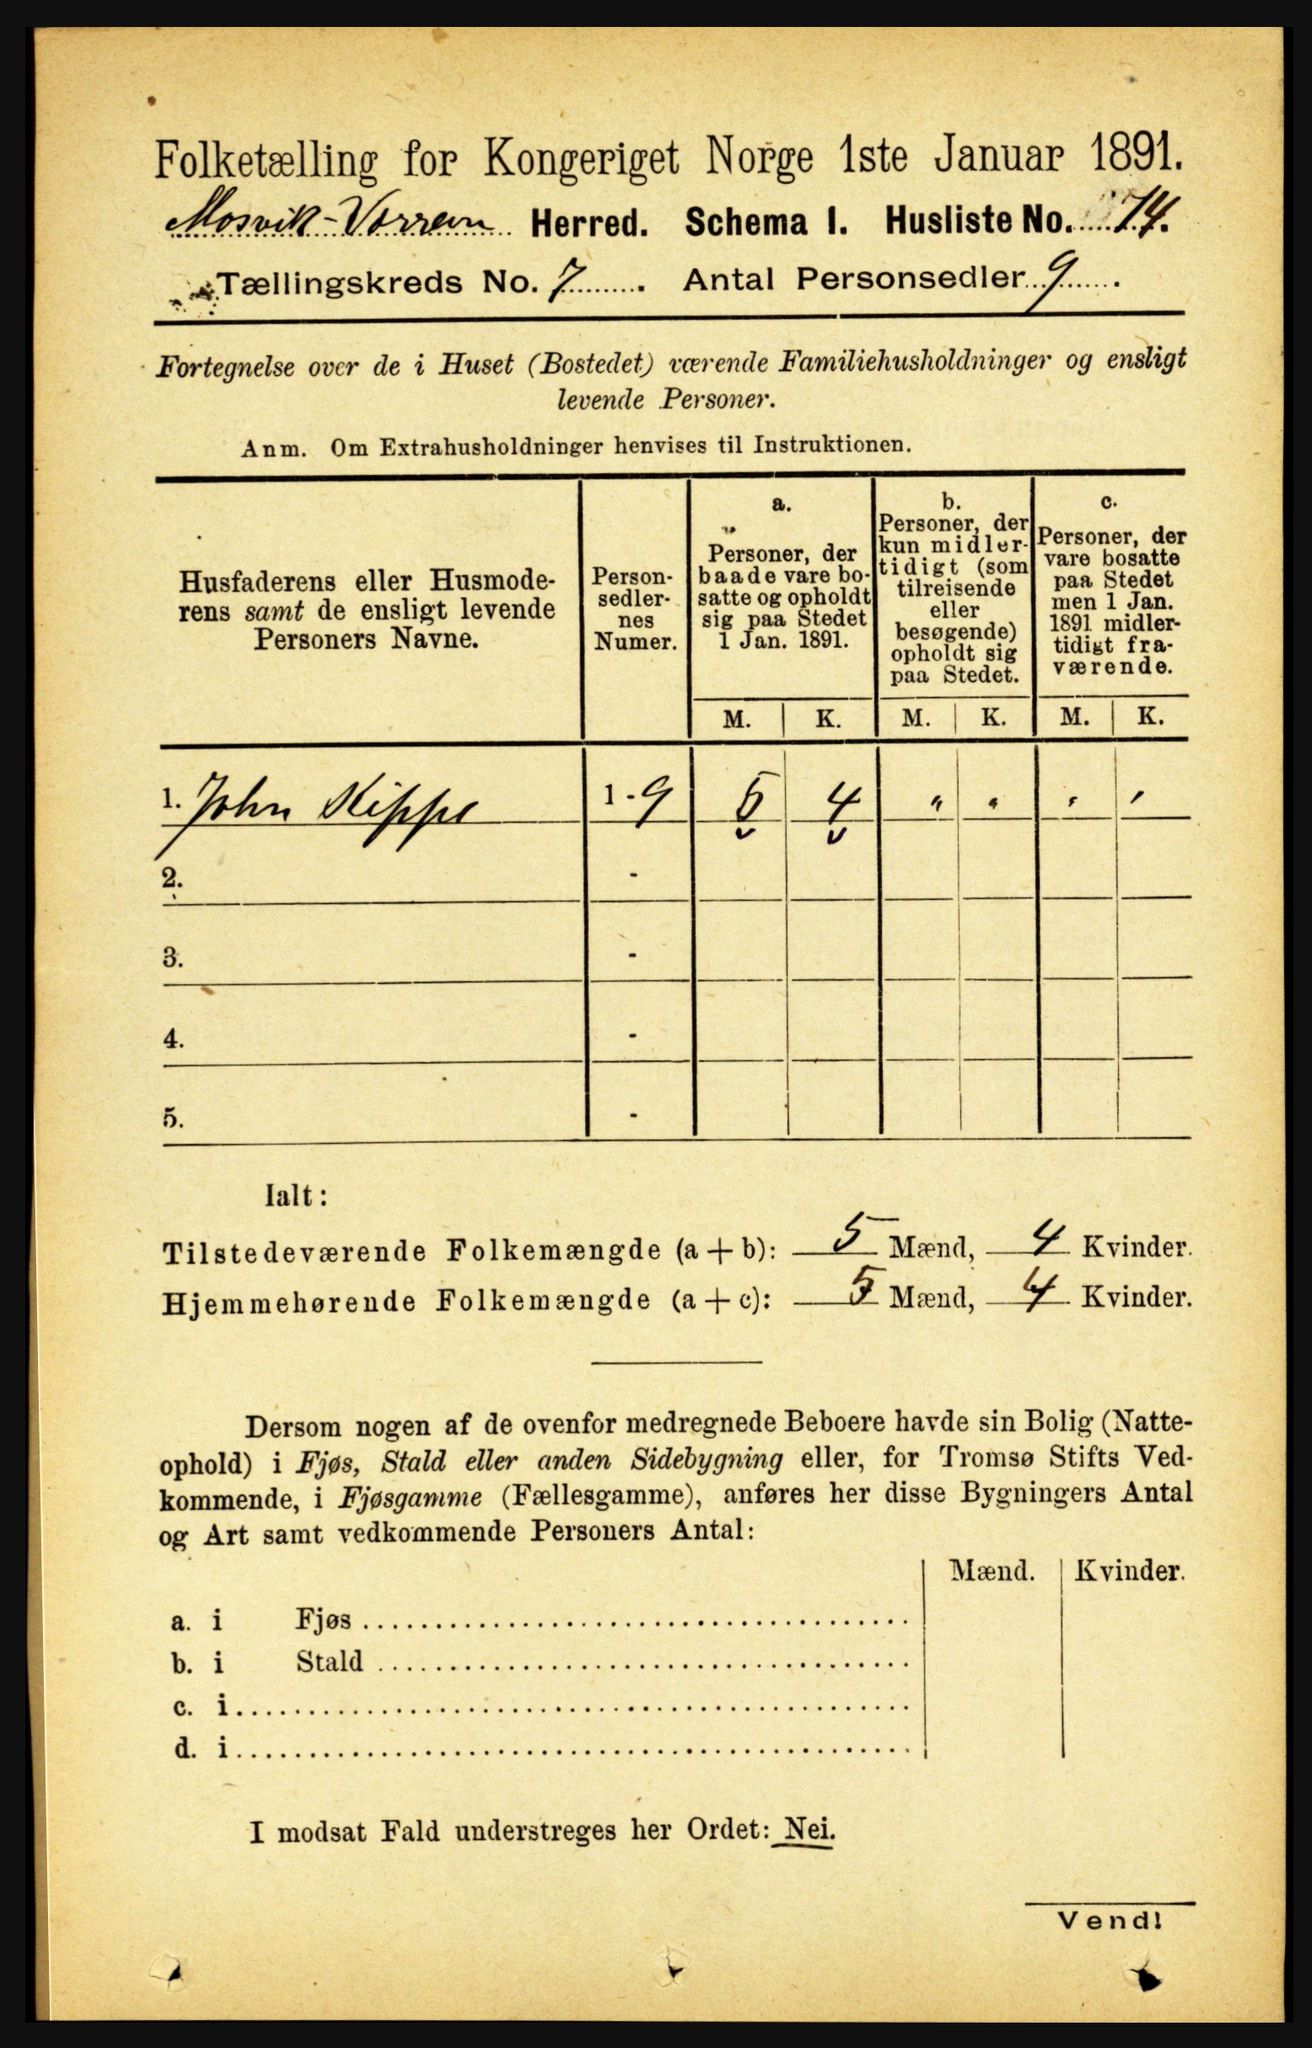 Folketælling for Kongeriget Norge 1ste Januar 1891.
Mosvik-Verran Herred. Schema I. Husliste No. 74.
Tællingskreds No. 7. Antal Personsedler 9.
Fortegnelse over de i Huset (Bostedet) værende Familiehusholdninger og ensligt
levende Personer.
Anm. Om Extrahusholdninger henvises til Instruktionen.
Husfaderens eller Husmode-
rens samt de ensligt levende
Personers Navne.
Person-
sedler-
nes
Numer.
a.
Personer, der
baade vare bo-
satte og opholdt
sig paa Stedet
1 Jan. 1891.
b.
Personer, der
kun midler-
tidigt (som
tilreisende
eller
besøgende)
opholdt sig
paa Stedet.
c.
Personer, der
vare bosatte
paa Stedet
men 1 Jan.
1891 midler-
tidigt fra-
værende.
M. K. M. K. M. K.
1. John Kippe 1 - 9 5 4 " " " "
2. -
3. -
4. -
5. -
Ialt:
Tilstedeværende Folkemængde (a + b): 5 Mænd, 4 Kvinder.
Hjemmehørende Folkemængde (a + c): 5 Mænd, 4 Kvinder.
Dersom nogen af de ovenfor medregnede Beboere havde sin Bolig (Natte-
ophold) i Fjøs, Stald eller anden Sidebygning eller, for Tromsø Stifts Ved-
kommende, i Fjøsgamme (Fællesgamme), anføres her disse Bygningers Antal
og Art samt vedkommende Personers Antal:
Mænd. Kvinder.
a. i Fjøs
b. i Stald
c. i
d. i
I modsat Fald understreges her Ordet: Nei.
Vend!